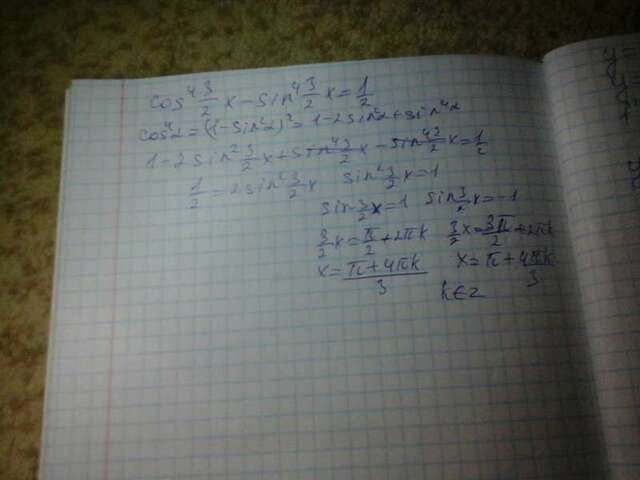 cos⁴ 3/2 x - sin⁴ 3/2 x = 1/2
cos⁴α = (1 - sin²α)² = 1 - 2 sin²α + sin⁴α
1 - 2 sin² 3/2 x + sin⁴ 3/2 x - sin⁴ 3/2 x = 1/2
1/2 = 2 sin² 3/2 x   sin² 3/2 x = 1
sin 3/2 x = 1   sin 3/2 x = -1
3/2 x = π/2 + 2πk   3/2 x = 3π/2 + 2πk
x = (π + 4πk)/3   x = π + 4πk/3
k ∈ z